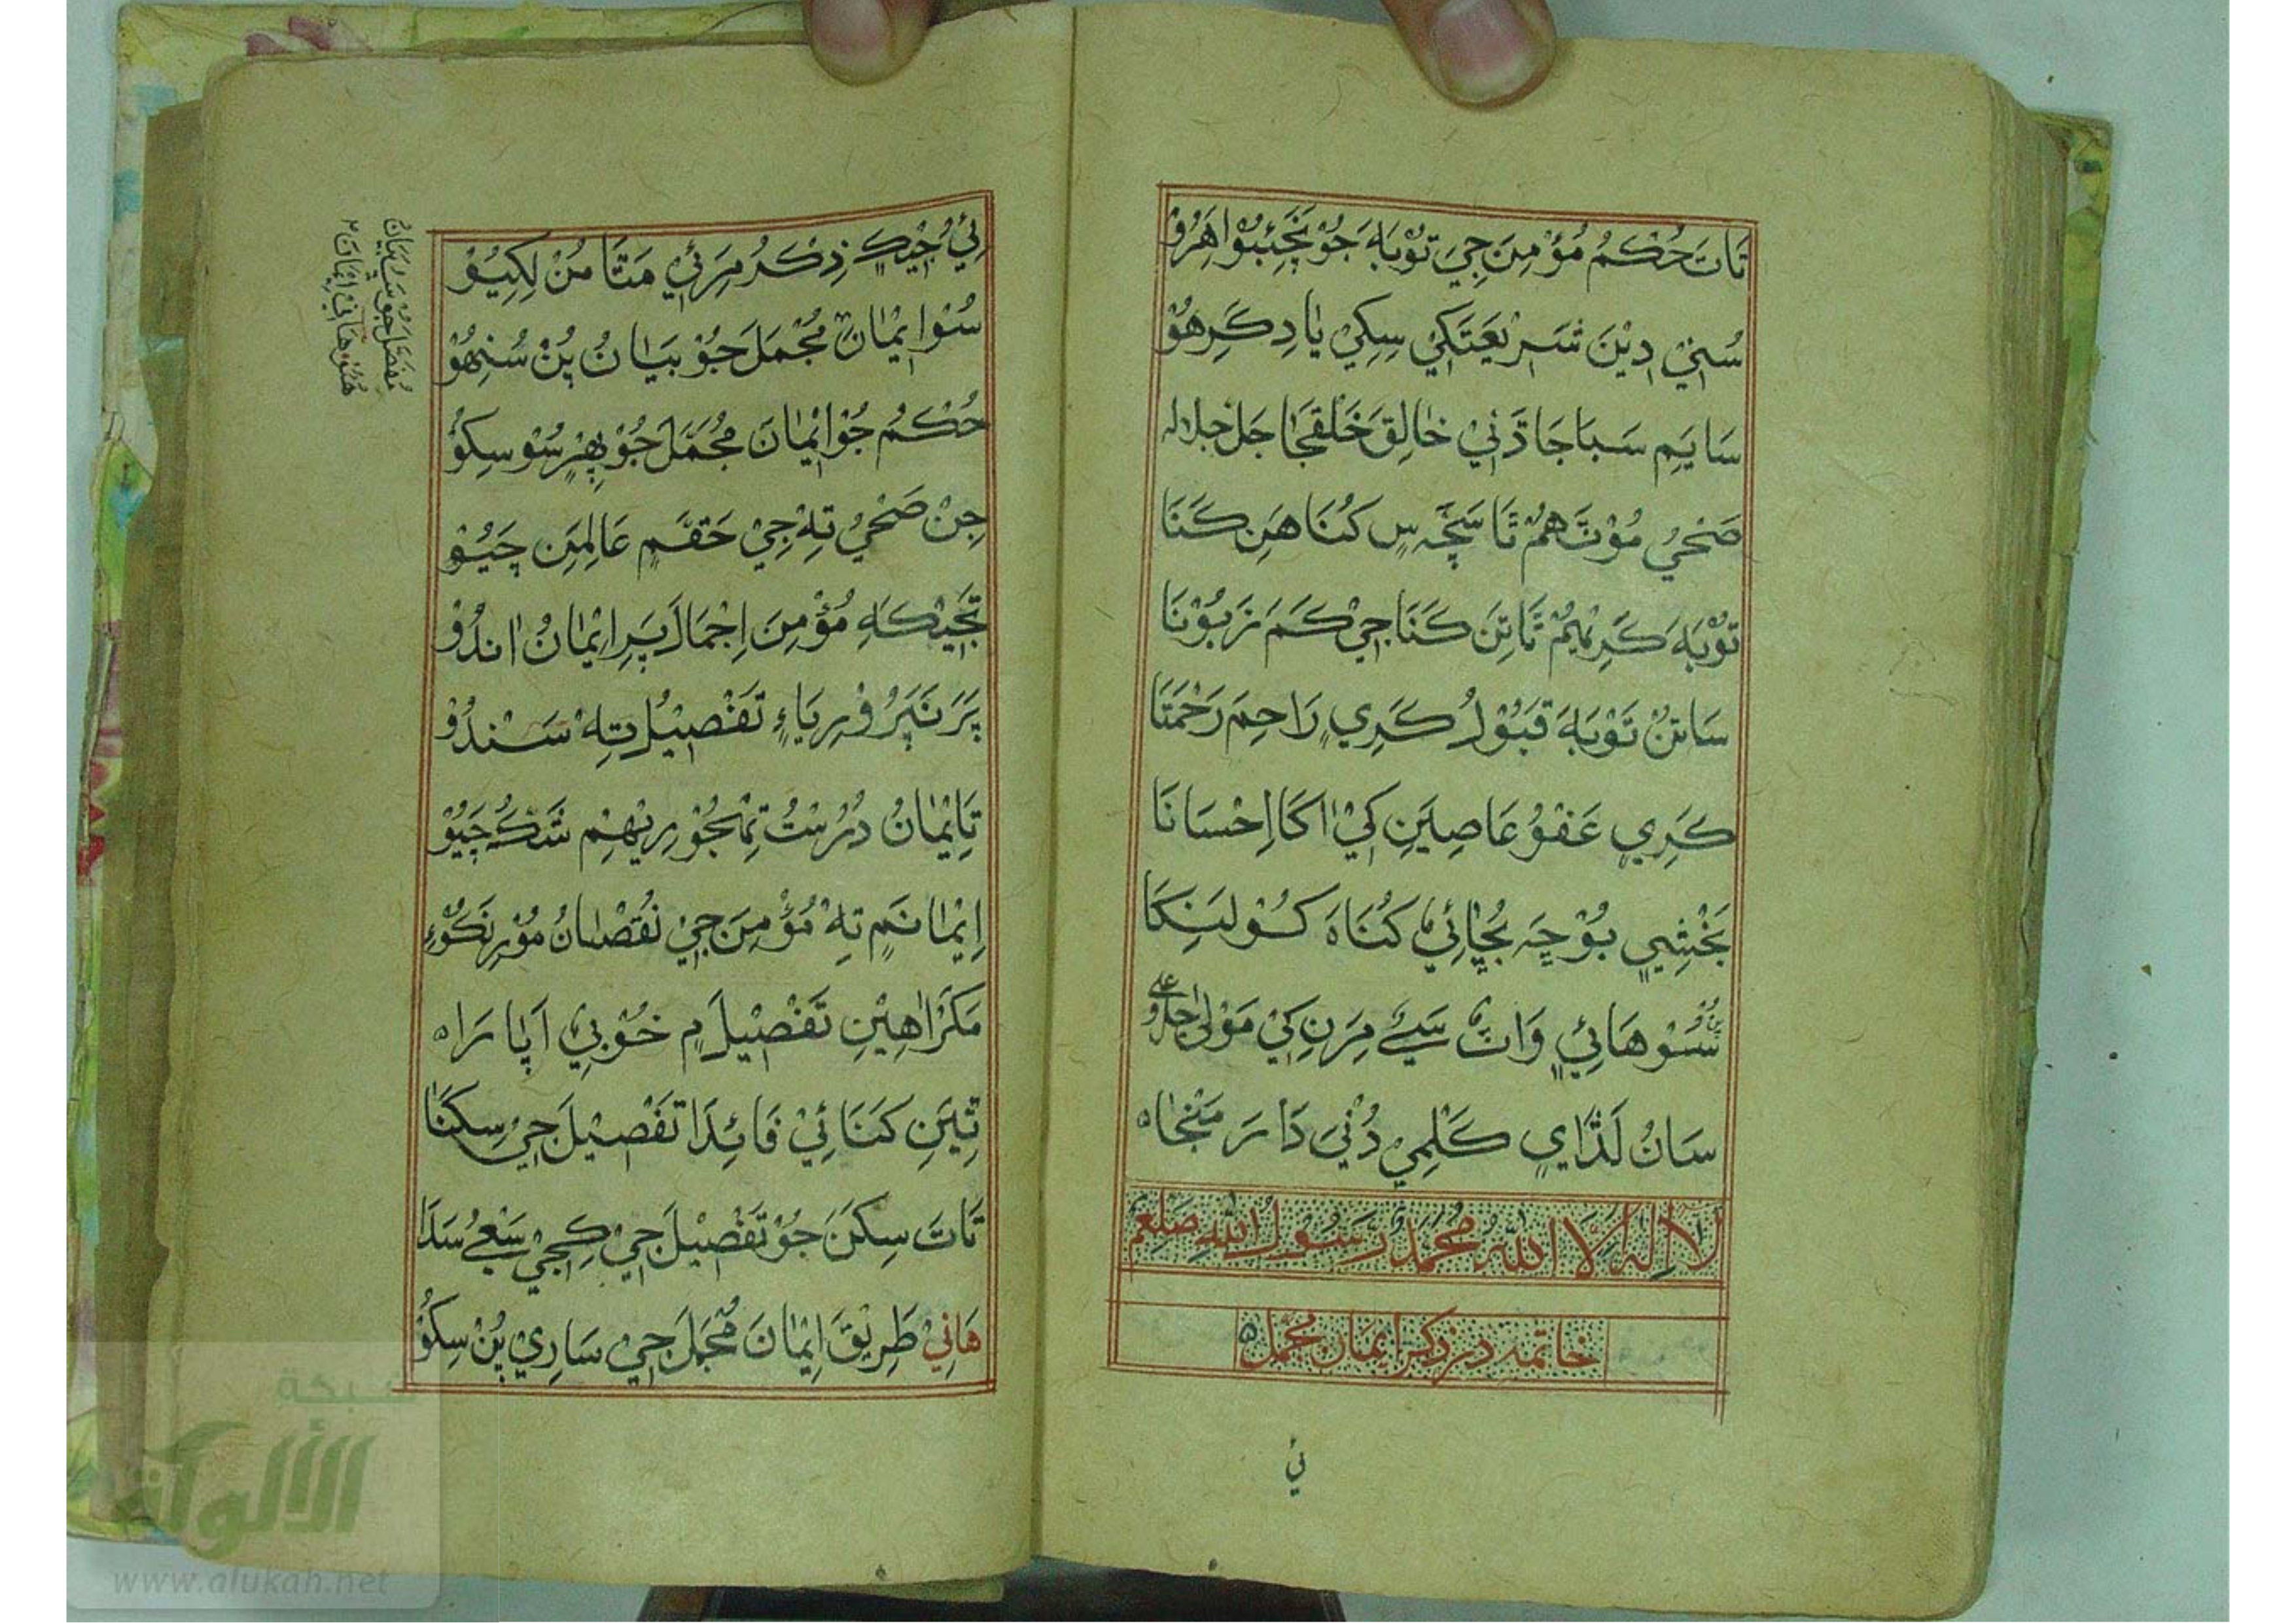 تَاتَ حُكْمُ مُؤْمِنَ جِيَ تَوْبَهَ جُوْ
سُنِيْ دِيْنَ شَرِيْعَتَكِي سِكِيْ يَادِ كَرِهُوْ
سَايَمِ سَبَاجَا دَنِيْ خَالِقَ خَلْقَجَا جَلَ جلاله
صَحْيُ مُوْتَ هُمُ تَا سَچَہ سٖ كُنَاهَنِ كَنَا
تَوْبَهَ كَرِيْمِمُ تَاتِنَ كَنَا جِيْ كَمَ زَبُوْنَا
سَاتِنْ تَوْبَهَ قَبُوْلُ كَرِي رَاحِمَ رَحْمَتَا
كَرِي عَفْوُ عَاصِيَنِ كِيْ اكَا اِحْسَانَا
بَخْشِيِي بُوْچَہ بُچَائِيْ كُنَاهَ كُوْلَنِكَا
سُوْهَائِيْ وَاتْ سَيئَ مِرَنِ كِيْ مَوْلٰی جل و علی
سَانُ لَذَّايِ كَلْمِيْ دُنْيَ دَارَ مَنْجَاہ
لا اله الا الله محمد رسول الله صلعم
خاتمه در ذكر ايمان مجمل
ئي
ئِيْ جِيْكٖ ذِكْرُ مِرَئِيْ مَتَا مُنْ لِكِيُوْ
سُوْ اِيْمَانْ مُجْمَلَ جُوْ بَيَانُ پُنْ سُنِهُوْ
حُكْمُ جُوْ اِيْمَانَ مُجْمَلَ جُوْ پِهرِ سُوْ سِكُوْ
جِنْ صَحْيُ تِهْ جِيْ حَقَمٖ عَالِمَنِ چَيُوْ
تَجِيْكَاهِ مُؤْمِنَ اِجْمَالَ پَرِ اِيْمَانُ انْدُوْ
پَرَ نَپَرُوْرِيَاءِ تَفْصِيْلُ تِهْ سَنْدُوْ
تَاِيْمَانُ دُرُسْتُ تِمْجُوْ رِيْهِمِ شَكُ چَيُوْ
اِيْمَانَمٖ تِهْ مُؤْمِنَ جِيْ نُقْصَانُ مُوْرِ نَكُوْءِ
مَكَرَ اهِيْنِ تَفْصِيْلَمٖ خُوْبِيْ اَپَارَاہ
تِيَنِ كَنَائِيْ فَائِدَا تَفْصِيْلَ جِيْ سِكَنَا
تَاتَ سِكَنَ جُوْ تَفْصِيْلَ جِيْ كِجِيْ سَعْيُ سَدَا
هَانِيْ طَرِيْقَ اِيْمَانَ مُجْمَلَ جِيْ سَارِيْ پُنْ سِكُوْ
مُفَصَّلَ جُوْ بَيَانُ
شبكة
الألوكة
www.alukah.net